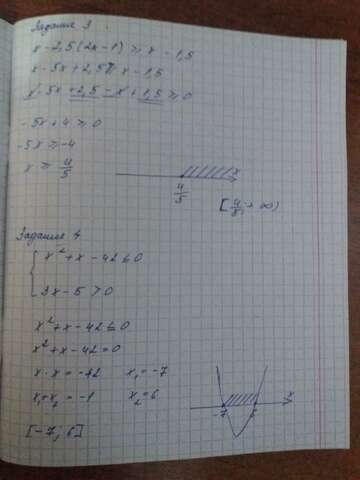 Задание 3
x-2,5(2x-1) ≥ x-1,5
x-5x+2,5 ≥ x-1,5
x-5x+2,5-x+1,5 ≥ 0
-5x+4 ≥ 0
-5x ≥ -4
x ≥ 4/5
x
4/5
[4/5; +∞)
Задание 4
{ x²+x-42 ≤ 0
3x-5 > 0
x²+x-42 ≤ 0
x²+x-42=0
x·x=-42 x₁=-7
x₁+x₂=-1 x₂=6
x
-7 6
[-7; 6]